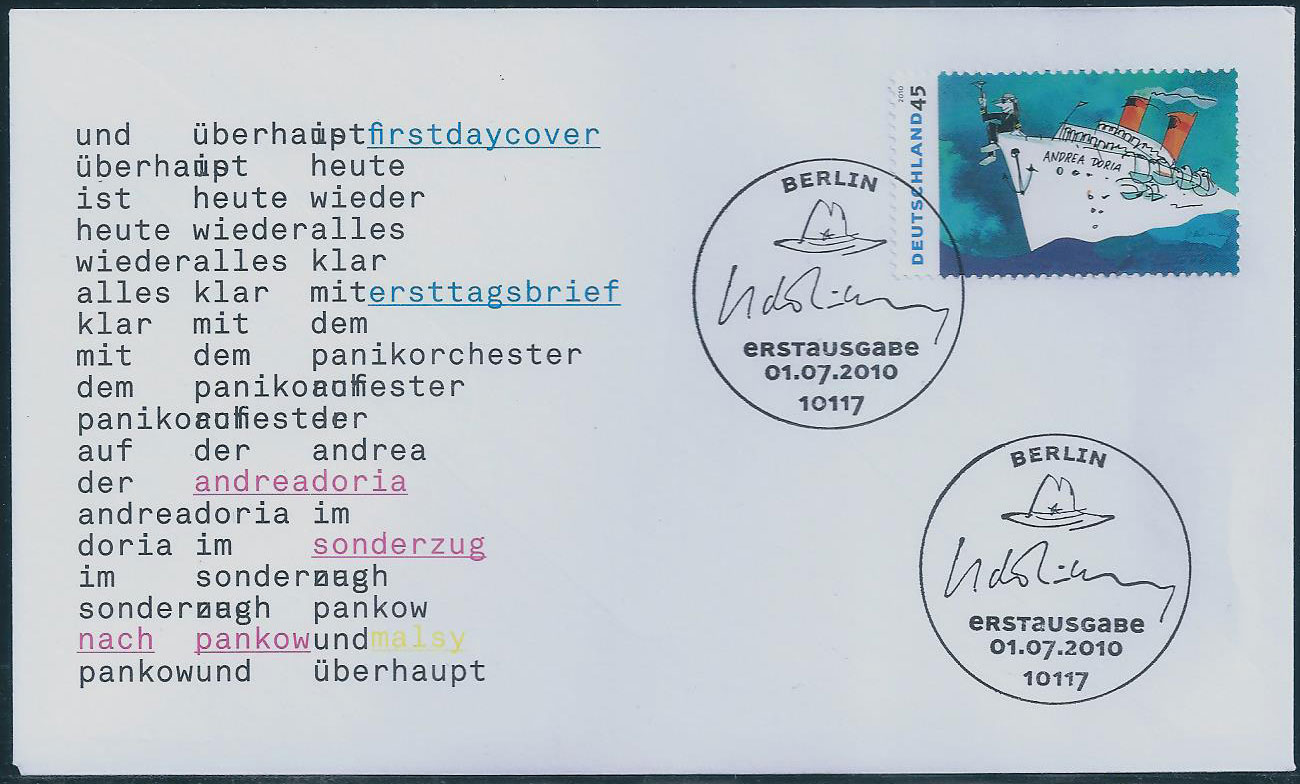 und überhaupt ist firstdaycover
überhaupt ist heute
ist heute wieder
heute wieder alles
wieder alles klar
alles klar mit ersttagsbrief
klar mit dem
mit dem panikorchester
dem panikorchester auf
panikorchester auf der
auf der andrea
der andreadoria
andreadoria im
doria im sonderzug
im sonderzug nach
sonderzug nach pankow
nach pankow und malsy
pankow und überhaupt
DEUTSCHLAND 45
2010
ANDREA DORIA
BERLIN
erstausgabe
01.07.2010
10117
BERLIN
erstausgabe
01.07.2010
10117